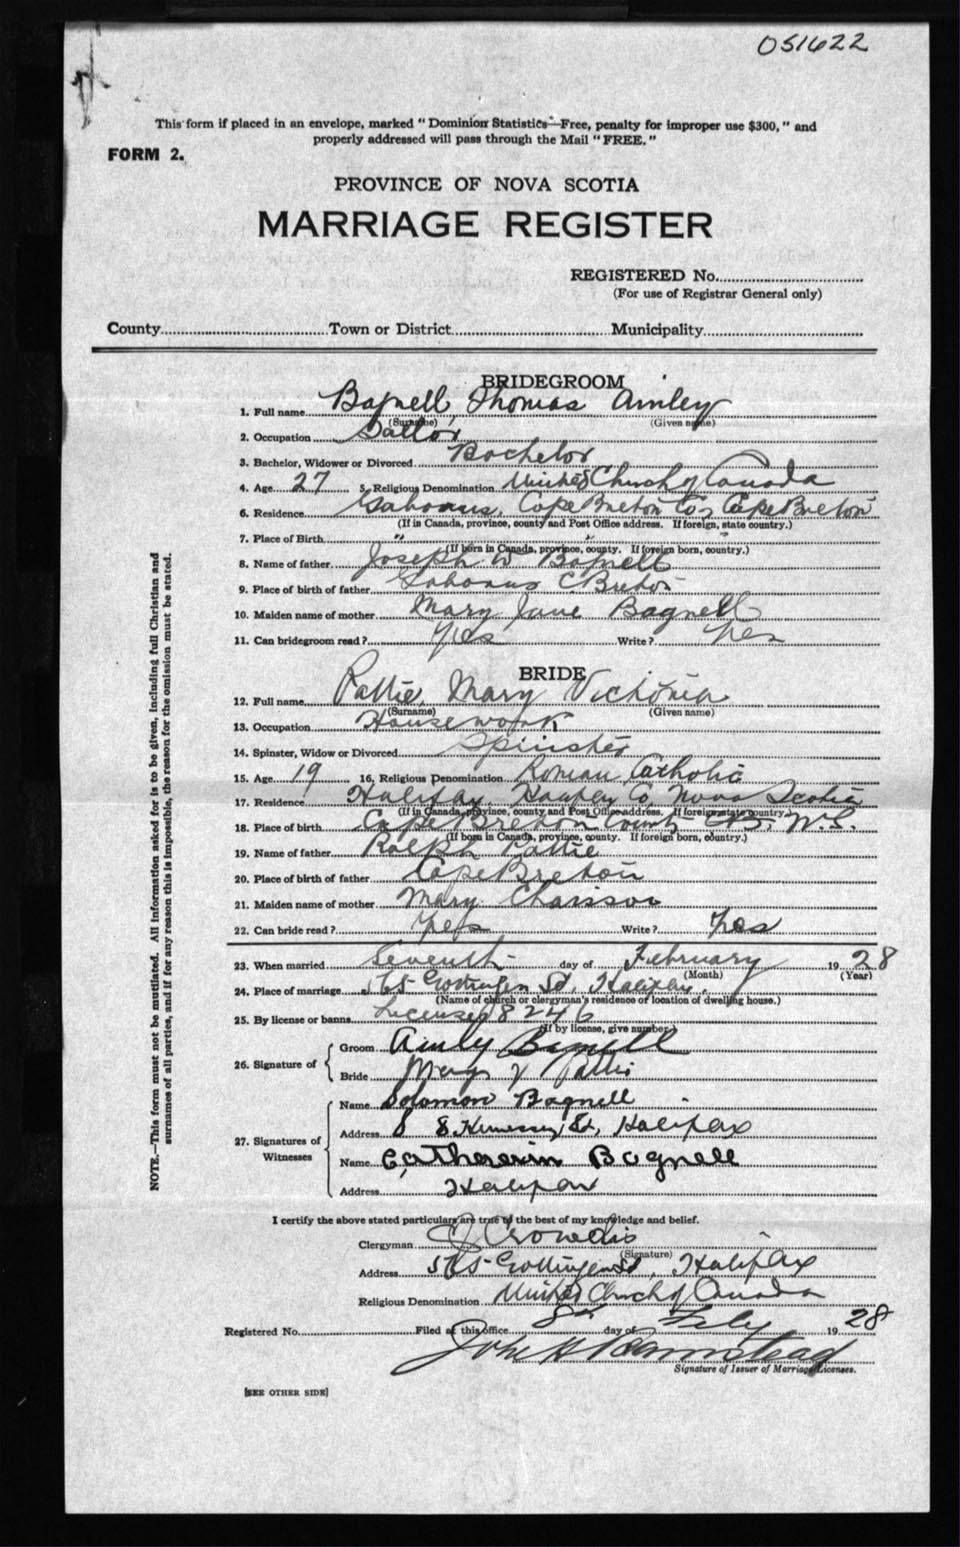 051622
This form if placed in an envelope, marked "Dominion Statistics—Free, penalty for improper use $300," and
properly addressed will pass through the Mail "FREE."
FORM 2.
PROVINCE OF NOVA SCOTIA
MARRIAGE REGISTER
REGISTERED No.
(For use of Registrar General only)
County Town or District Municipality
BRIDEGROOM
1. Full name Bagnell, Thomas Amley
(Surname) (Given name)
2. Occupation Sailor
3. Bachelor, Widower or Divorced Bachelor
4. Age 27 5. Religious Denomination United Church of Canada
6. Residence Gabarus, Cape Breton Co, Cape Breton
(If in Canada, province, county and Post Office address. If foreign, state country.)
7. Place of Birth " " "
(If born in Canada, province, county. If foreign born, country.)
8. Name of father Joseph W Bagnell
9. Place of birth of father Gabarus C. Breton
10. Maiden name of mother Mary Jane Bagnell
11. Can bridegroom read? yes Write? yes
BRIDE
12. Full name Pattie, Mary Victoria
(Surname) (Given name)
13. Occupation Housework
14. Spinster, Widow or Divorced Spinster
15. Age 19 16. Religious Denomination Roman Catholic
17. Residence Halifax, Halifax Co, Nova Scotia
(If in Canada, province, county and Post Office address. If foreign state country.)
18. Place of birth Cape Breton County
(If born in Canada, province, county. If foreign born, country.)
19. Name of father Ralph Pattie
20. Place of birth of father Cape Breton
21. Maiden name of mother Mary Chaisson
22. Can bride read? yes Write? yes
23. When married Seventh day of February 1928
(Month) (Year)
24. Place of marriage 565 Gottingen St, Halifax.
(Name of church or clergyman's residence of location of dwelling house.)
25. By license or banns License 18246
(If by license, give number.)
26. Signature of
Groom Amly Bagnell
Bride Mary V Pattie
27. Signatures of Witnesses
Name Solomon Bagnell
Address 8 St, Halifax
Name Catherein Bagnell
Address Halifax
I certify the above stated particulars are true to the best of my knowledge and belief.
Clergyman Crowdis
(Signature)
Address 565 Gottingen St, Halifax
Religious Denomination United Church of Canada
Registered No. Filed at this office 8th day of Feby 1928
John H Barnstead
Signature of Issuer of Marriage Licenses.
[SEE OTHER SIDE]
NOTE.—This form must not be mutilated. All information asked for is to be given, including full Christian and
surnames of all parties, and if for any reason this is impossible, the reason for the omission must be stated.